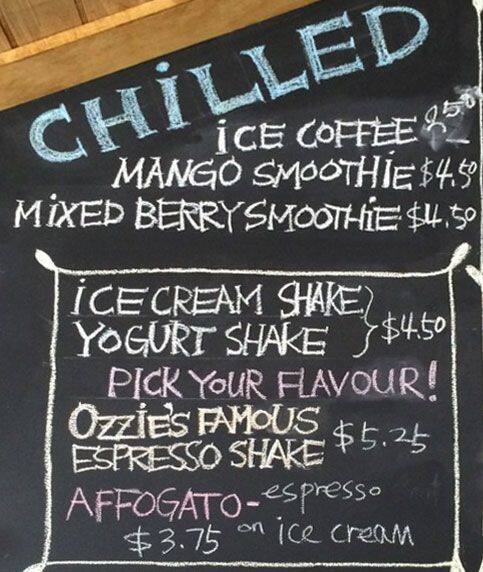 CHILLED
ICE COFFEE
MANGO SMOOTHIE $4.50
MIXED BERRY SMOOTHIE $4.50
ICE CREAM SHAKE
YOGURT SHAKE } $4.50
PICK YOUR FLAVOUR!
OZZIE'S FAMOUS
ESPRESSO SHAKE $5.25
AFFOGATO- espresso
$3.75 on ice cream